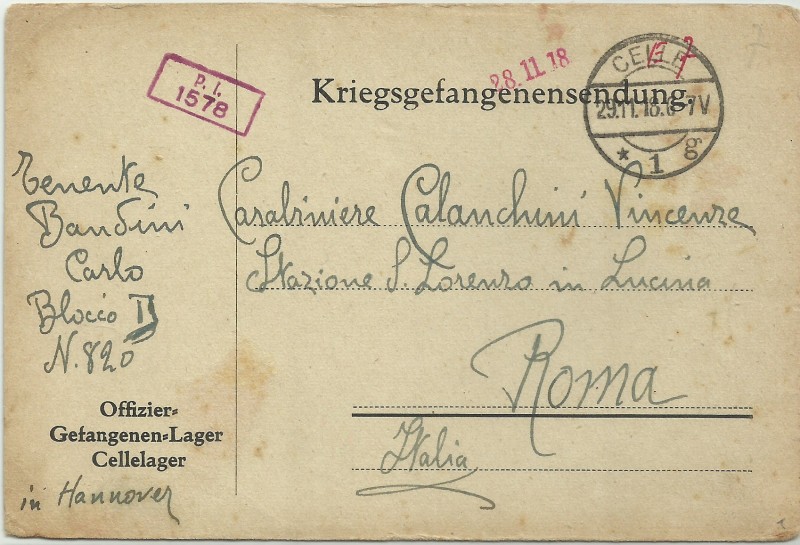 P. I.
1578
28.11.18
Kriegsgefangenensendung.
CELLE
29.11.18.6-7V
* 1 g
Tenente
Bandini
Carlo
Blocco D
N. 820
Offizier=
Gefangenen=Lager
Cellelager
in Hannover
Carabiniere Calanchini Vincenzo
Stazione S. Lorenzo in Lucina
Roma
Italia